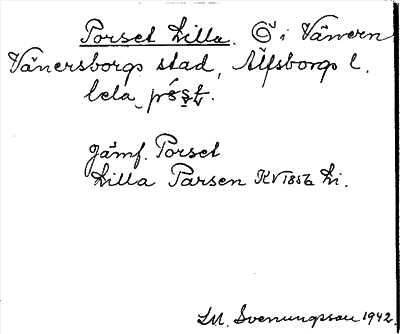 Porset Lilla. Ö i Vänern
Vänersborgs stad, Älfsborgs l.
Jämf. Porset
Lilla Parsen KV 1856 Li.
Svenungsson 1942.